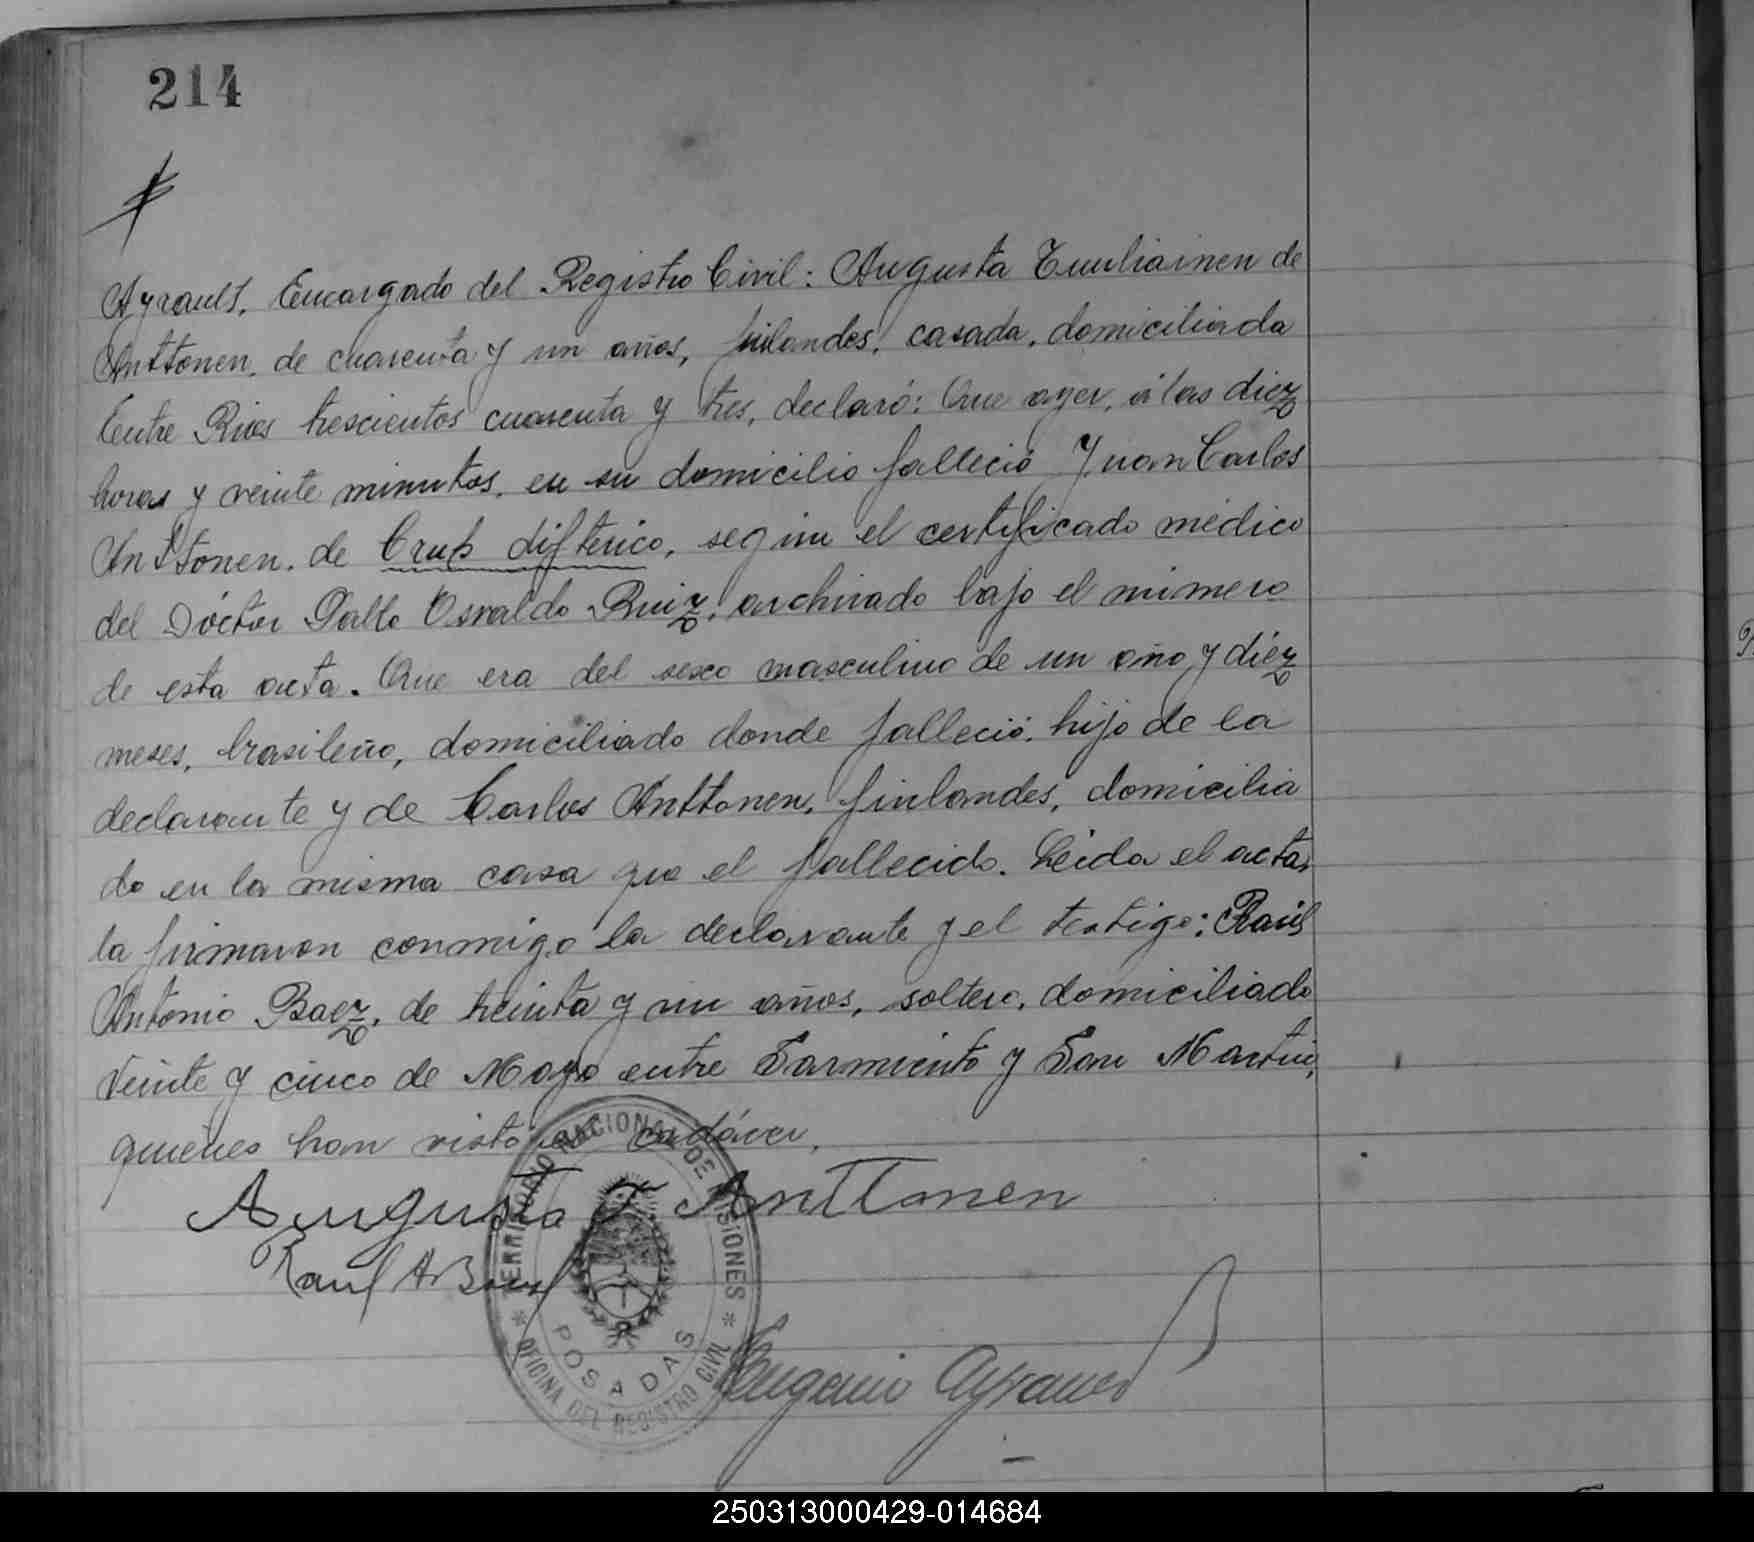 214
Ayrault, Encargado del Registro Civil: Augusta Tuuliainen de
Anttonen, de cuarenta y un años, finlandes, casada, domiciliada
Entre Rios trescientos cuarenta y tres, declaró: Que ayer, á las diez
horas y veinte minutos, en su domicilio falleció Juan Carlos
Anttonen, de Crup diftérico, segun el certificado médico
del Dóctor Osvaldo Ruiz, archivado bajo el número
de esta acta. Que era del sexo masculino de un año y diéz
meses, brasileño, domiciliado donde falleció, hijo de la
declarante y de Carlos Anttonen, finlandes, domicilia
do en la misma casa que el fallecido. Leida el acta,
la firmaron conmigo la declarante y el testigo: Raúl
Antonio Baez, de treinta y un años, soltero, domiciliado
Veinte y cinco de Mayo entre Sarmiento y San Martin,
quienes han visto el cadáver.
Augusta T. Anttonen
Raul A Baez
TERRITORIO NACIONAL DE MISIONES
POSADAS
* OFICINA DEL REGISTRO CIVIL *
Eugenio Ayrault
250313000429-014684